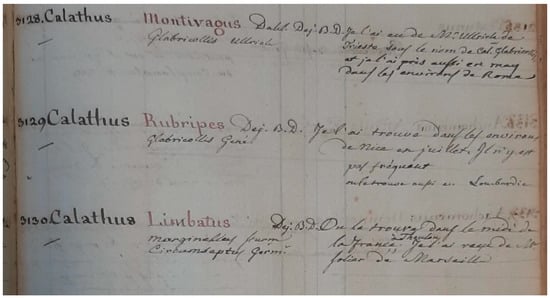 3128. Calathus Montivagus Dahl. Dej. B.D. Je l'ai eu de Mr. Ullrich de
Glabricollis Ullrich Trieste sous le nom de Cal. Glabricollis
et je l'ai pris aussi en may
dans les environs de Rome
3129 Calathus Rubripes Dej. B.D. Je l'ai trouvé dans les environs
Glabricollis Gené de Nice en juillet. Il n'y est
pas fréquent
on le trouve aussi en Lombardie
3130. Calathus Limbatus Dej. B.D. On le trouve dans le midi de
marginalis la France Je l'ai reçu de Mr
Circumseptus Germ. Solier de Marseille